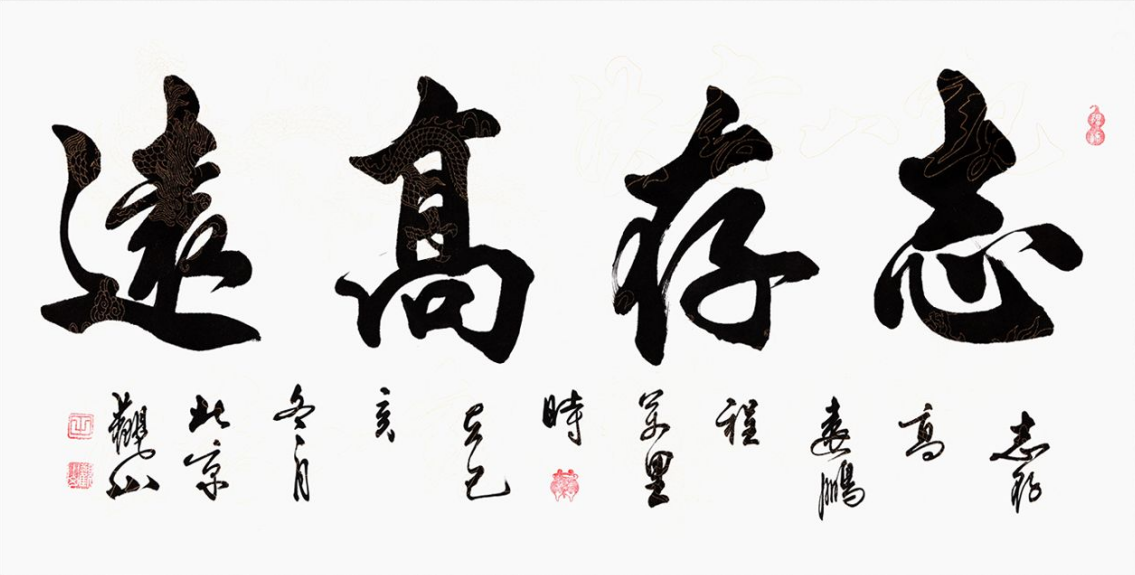 志存高遠
志存
高
遠鵬
程
萬里
時
在己
亥
冬月
北京
觀山